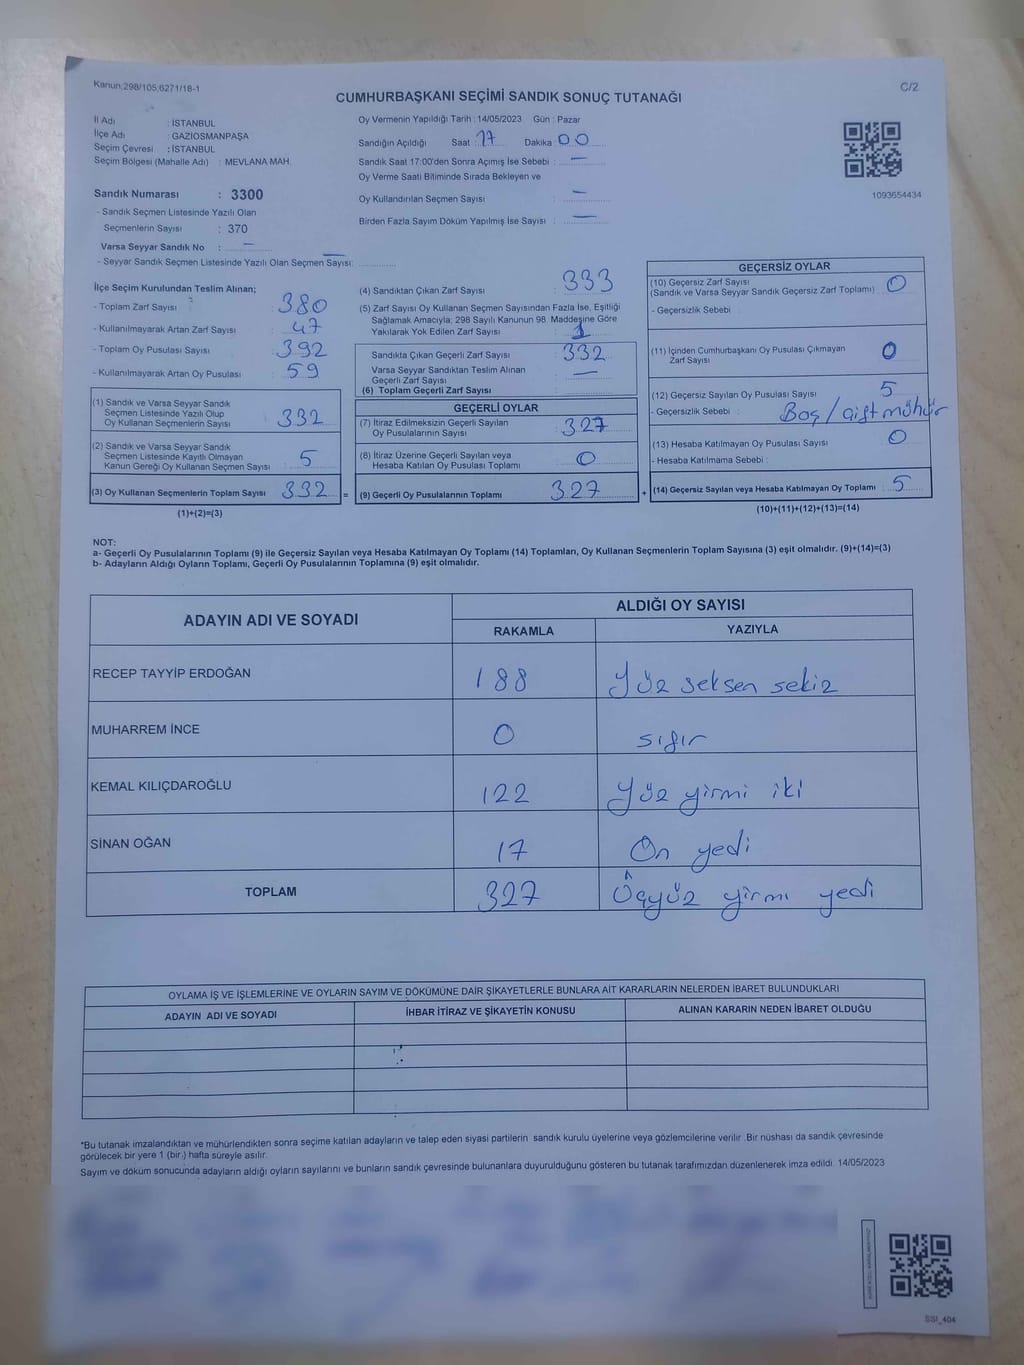 Kanun;298/105;6271/18-1
C/2
CUMHURBAŞKANI SEÇİMİ SANDIK SONUÇ TUTANAĞI
İl Adı : İSTANBUL
İlçe Adı : GAZİOSMANPAŞA
Seçim Çevresi : İSTANBUL
Seçim Bölgesi (Mahalle Adı) : MEVLANA MAH.
Sandık Numarası : 3300
- Sandık Seçmen Listesinde Yazılı Olan
Seçmenlerin Sayısı : 370
Varsa Seyyar Sandık No : —
- Seyyar Sandık Seçmen Listesinde Yazılı Olan Seçmen Sayısı: —
Oy Vermenin Yapıldığı Tarih : 14/05/2023 Gün : Pazar
Sandığın Açıldığı Saat : 17 Dakika : 00
Sandık Saat 17:00'den Sonra Açımış İse Sebebi : —
Oy Verme Saati Bitiminde Sırada Bekleyen ve
Oy Kullandırılan Seçmen Sayısı : —
Birden Fazla Sayım Döküm Yapılmış İse Sayısı : —
1093654434
İlçe Seçim Kurulundan Teslim Alınan;
- Toplam Zarf Sayısı : 380
- Kullanılmayarak Artan Zarf Sayısı : 47
- Toplam Oy Pusulası Sayısı : 392
- Kullanılmayarak Artan Oy Pusulası : 59
(1) Sandık ve Varsa Seyyar Sandık
Seçmen Listesinde Yazılı Olup
Oy Kullanan Seçmenlerin Sayısı : 332
(2) Sandık ve Varsa Seyyar Sandık
Seçmen Listesinde Kayıtlı Olmayan
Kanun Gereği Oy Kullanan Seçmen Sayısı : 5
(3) Oy Kullanan Seçmenlerin Toplam Sayısı : 332 =
(1)+(2)=(3)
(4) Sandıktan Çıkan Zarf Sayısı : 333
(5) Zarf Sayısı Oy Kullanan Seçmen Sayısından Fazla İse, Eşitliği
Sağlamak Amacıyla; 298 Sayılı Kanunun 98. Maddesine Göre
Yakılarak Yok Edilen Zarf Sayısı : 1
Sandıkta Çıkan Geçerli Zarf Sayısı : 332
Varsa Seyyar Sandıktan Teslim Alınan
Geçerli Zarf Sayısı : —
(6) Toplam Geçerli Zarf Sayısı :
GEÇERLİ OYLAR
(7) İtiraz Edilmeksizin Geçerli Sayılan
Oy Pusulalarının Sayısı : 327
(8) İtiraz Üzerine Geçerli Sayılan veya
Hesaba Katılan Oy Pusulası Toplamı : 0
(9) Geçerli Oy Pusulalarının Toplamı : 327 +
GEÇERSİZ OYLAR
(10) Geçersiz Zarf Sayısı : 0
(Sandık ve Varsa Seyyar Sandık Geçersiz Zarf Toplamı)
- Geçersizlik Sebebi :
(11) İçinden Cumhurbaşkanı Oy Pusulası Çıkmayan
Zarf Sayısı : 0
(12) Geçersiz Sayılan Oy Pusulası Sayısı : 5
- Geçersizlik Sebebi : Boş / çift mühür
(13) Hesaba Katılmayan Oy Pusulası Sayısı : 0
- Hesaba Katılmama Sebebi :
(14) Geçersiz Sayılan veya Hesaba Katılmayan Oy Toplamı : 5
(10)+(11)+(12)+(13)=(14)
NOT:
a- Geçerli Oy Pusulalarının Toplamı (9) ile Geçersiz Sayılan veya Hesaba Katılmayan Oy Toplamı (14) Toplamları, Oy Kullanan Seçmenlerin Toplam Sayısına (3) eşit olmalıdır. (9)+(14)=(3)
b- Adayların Aldığı Oyların Toplamı, Geçerli Oy Pusulalarının Toplamına (9) eşit olmalıdır.
ADAYIN ADI VE SOYADI
ALDIĞI OY SAYISI
RAKAMLA YAZIYLA
RECEP TAYYİP ERDOĞAN 188 Yüz seksen sekiz
MUHARREM İNCE 0 sıfır
KEMAL KILIÇDAROĞLU 122 Yüz yirmi iki
SİNAN OĞAN 17 On yedi
TOPLAM 327 Üçyüz yirmi yedi
OYLAMA İŞ VE İŞLEMLERİNE VE OYLARIN SAYIM VE DÖKÜMÜNE DAİR ŞİKAYETLERLE BUNLARA AİT KARARLARIN NELERDEN İBARET BULUNDUKLARI
ADAYIN ADI VE SOYADI İHBAR İTİRAZ VE ŞİKAYETİN KONUSU ALINAN KARARIN NEDEN İBARET OLDUĞU
*Bu tutanak imzalandıktan ve mühürlendikten sonra seçime katılan adayların ve talep eden siyasi partilerin sandık kurulu üyelerine veya gözlemcilerine verilir. Bir nüshası da sandık çevresinde
görülecek bir yere 1 (bir.) hafta süreyle asılır.
Sayım ve döküm sonucunda adayların aldığı oyların sayılarını ve bunların sandık çevresinde bulunanlara duyurulduğunu gösteren bu tutanak tarafımızdan düzenlenerek imza edildi. 14/05/2023
SSI_404